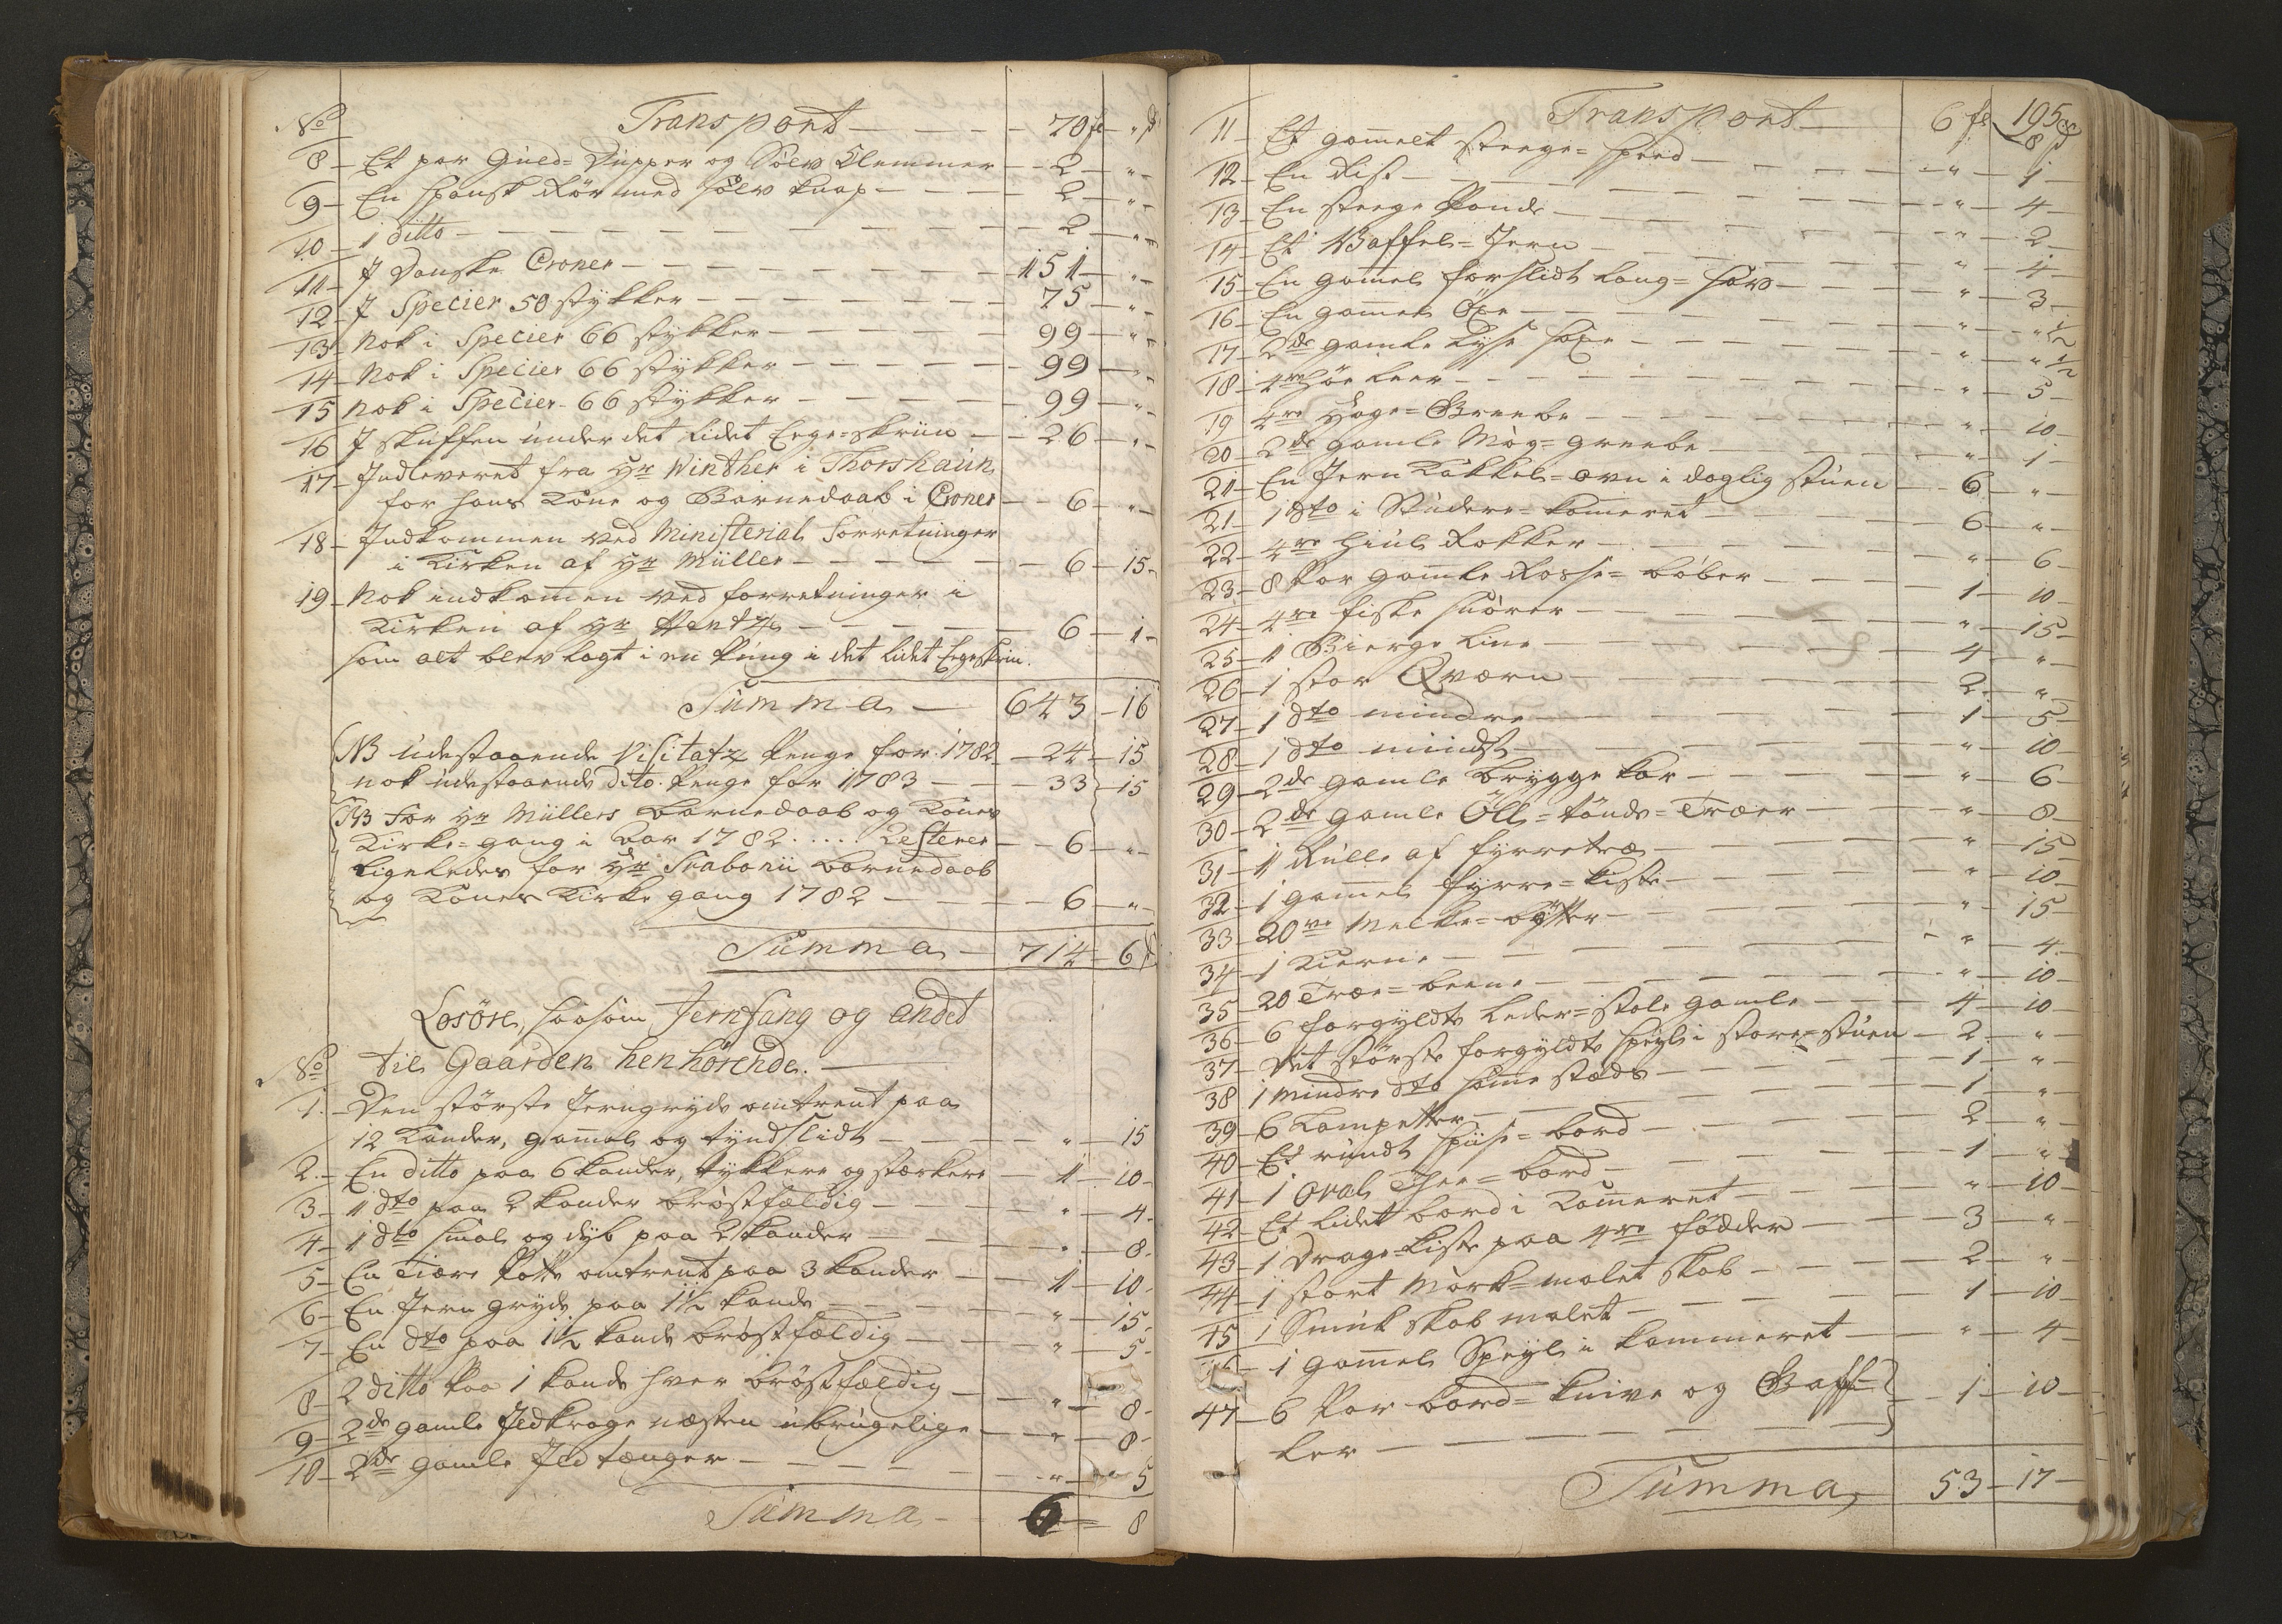 No Transport — — — 70 fl — „ ß
8 — Et par Guld-Knapper og Sölv Klemmer — — 2 — „ —
9 — En Spansk Rör med Sölv knap — — — 2 — „ —
10 — 1 ditto — — — — — — 2 — „ —
11 — J Danske Croner — — — — — 151 — „ —
12 — J Specier 50 stÿkker — — — — 75 — „ —
13 — Nok i Specier 66 stÿkker — — — 99 — „ —
14 — Nok i Specier 66 stÿkker — — — 99 — „ —
15 Nok i Specier 66 stÿkker — — — 99 — „ —
16 J skuffen under det lidet Eege-skriin — — 26 — „ —
17 — Indleveret fra Hr Winther i Thorshaün
for hans Kone og Barnedaab i Croner — — 6 — „ —
18 — Indkommen ved Ministerial Forretninger
i Kirken af Hr Müller — — — — 6 — 15 —
19 — Nok indkom̃en ved forretninger i
Kirken af Hr — — — — 6 — 1 —
som alt blev lagt i en Pung i det lidet Eegeskrin.
Summa — 643 — 16
NB udestaaende Visitatz Penge for 1782 — 24 — 15
nok udestaaende dito. Penge for 1783 — — 33 — 15
NB For Hr Müllers barnedaab og Kones
Kirke-gang i Vor 1782 . . . . Resterer — — 6 — „ —
Ligeledes for Hr Trabonii barnedaab
og Kones Kirkegang 1782 — — — — 6 — „ —
Summa — 714 — 6 ß
Losöre, saasom Jernfang og andet
No til Gaarden henhörende. —
1. — Den störste Jerngryde omtrent paa
12 Kander, gam̃el og tyndslidt — — — „ — 15
2. — En ditto paa 6 kander, tykkere og stærkere — 1 — 10 —
3 — 1 dto paa 2 kander bröstfældig — — — „ — 4 —
4 — 1 dto smal og dyb paa 2 kander — — „ — 8 —
5 — En Tiære Potte omtrent paa 3 kander — — 1 — 10 —
6 — En Jern gryde paa 1½ kande — — — „ — 15 —
7 — En dto paa 1½ kande bröstfældig — — „ — 5 —
8 — 2 ditto paa 1 kande hver bröstfældig — — „ — 8 —
9 — 2de gamle Jldkroge næsten ubrugelige — — „ — 8 —
10 — 2de gamle Jld tænger — — — — „ — 5
Summa — 6 — 8
195
Transport — 6 fl — 8 ß
11 — Et gam̃elt steege-Spid — — — „ — 1 —
12 — En Rist — — — — „ — 4 —
13 — En steege Pande — — — — „ — 2 —
14 — Et Waffel-Jern — — — — „ — 4 —
15 — En gam̃el forslidt Lang-Sav — — — „ — 3 —
16 — En gam̃el Öxe — — — — „ — „ ½
17 — 2de gamle — — — — „ — „ ½
18 — 4re Höe Leer — — — — „ — 5 —
19 4re Hage-Greebe — — — — „ — 10 —
20 — 2de gamle Mög-greebe — — — „ — 1 —
21 — En Jern Kakkel-ovn i daglig stuen — 6 — „ —
21 — 1 dto i Studere-kameret — — 6 — „ —
22 — 4re Hiul Rokker — — — — „ — 6 —
23 — 8 Par gamle — — — 1 — 10 —
24 — 4re fiske snörer — — — „ — 15 —
25 — 1 Bierge Line — — — 4 — „ —
26 — 1 stor Qværn — — — 2 — „ —
27 — 1 dto mindre — — — 1 — 5 —
28 — 1 dto mindst — — — „ — 10 —
29 — 2de gamle brygge kar — — — „ — 6 —
30 — 2de gamle Öll-tönde-Træer — — „ — 8 —
31 — 1 Rulle af fyrretræ — — — „ — 15 —
32 — 1 gam̃el fyrre-kiste — — — „ — 10 —
33 — 20ve Melke-bytter — — — „ — 15 —
34 — 1 Kierne — — — — „ — 4 —
35 — 20 Træe- — — — — „ — 10 —
36 — 6 forgyldte Leder-stole gamle — — 4 — 10 —
37 — Det störste forgyldte Speyl i store-stuen — 2 — „ —
38 1 mindre dto samme stæds — — — 1 — „ —
39 — 6 Lampetter — — — — 1 — „ —
40 — Et rundt Spiise-bord — — — 2 — „ —
41 — 1 Oval Thee-bord — — — 1 — „ —
42 — Et lidet bord i Kam̃eret — — — „ — 10 —
43 — 1 Drage-kiste paa 4re födder — — 3 — „ —
44 — 1 stort Mörk-malet skab — — — 2 — „ —
45 1 skab malet — — — 1 — 10 —
46 — 1 gam̃el Speyl i kammeret — — „ — 4 —
47 — 6 Par bord-knive og Gaff-
ler — — — 1 — 10 —
Summa, 53 — 17 —